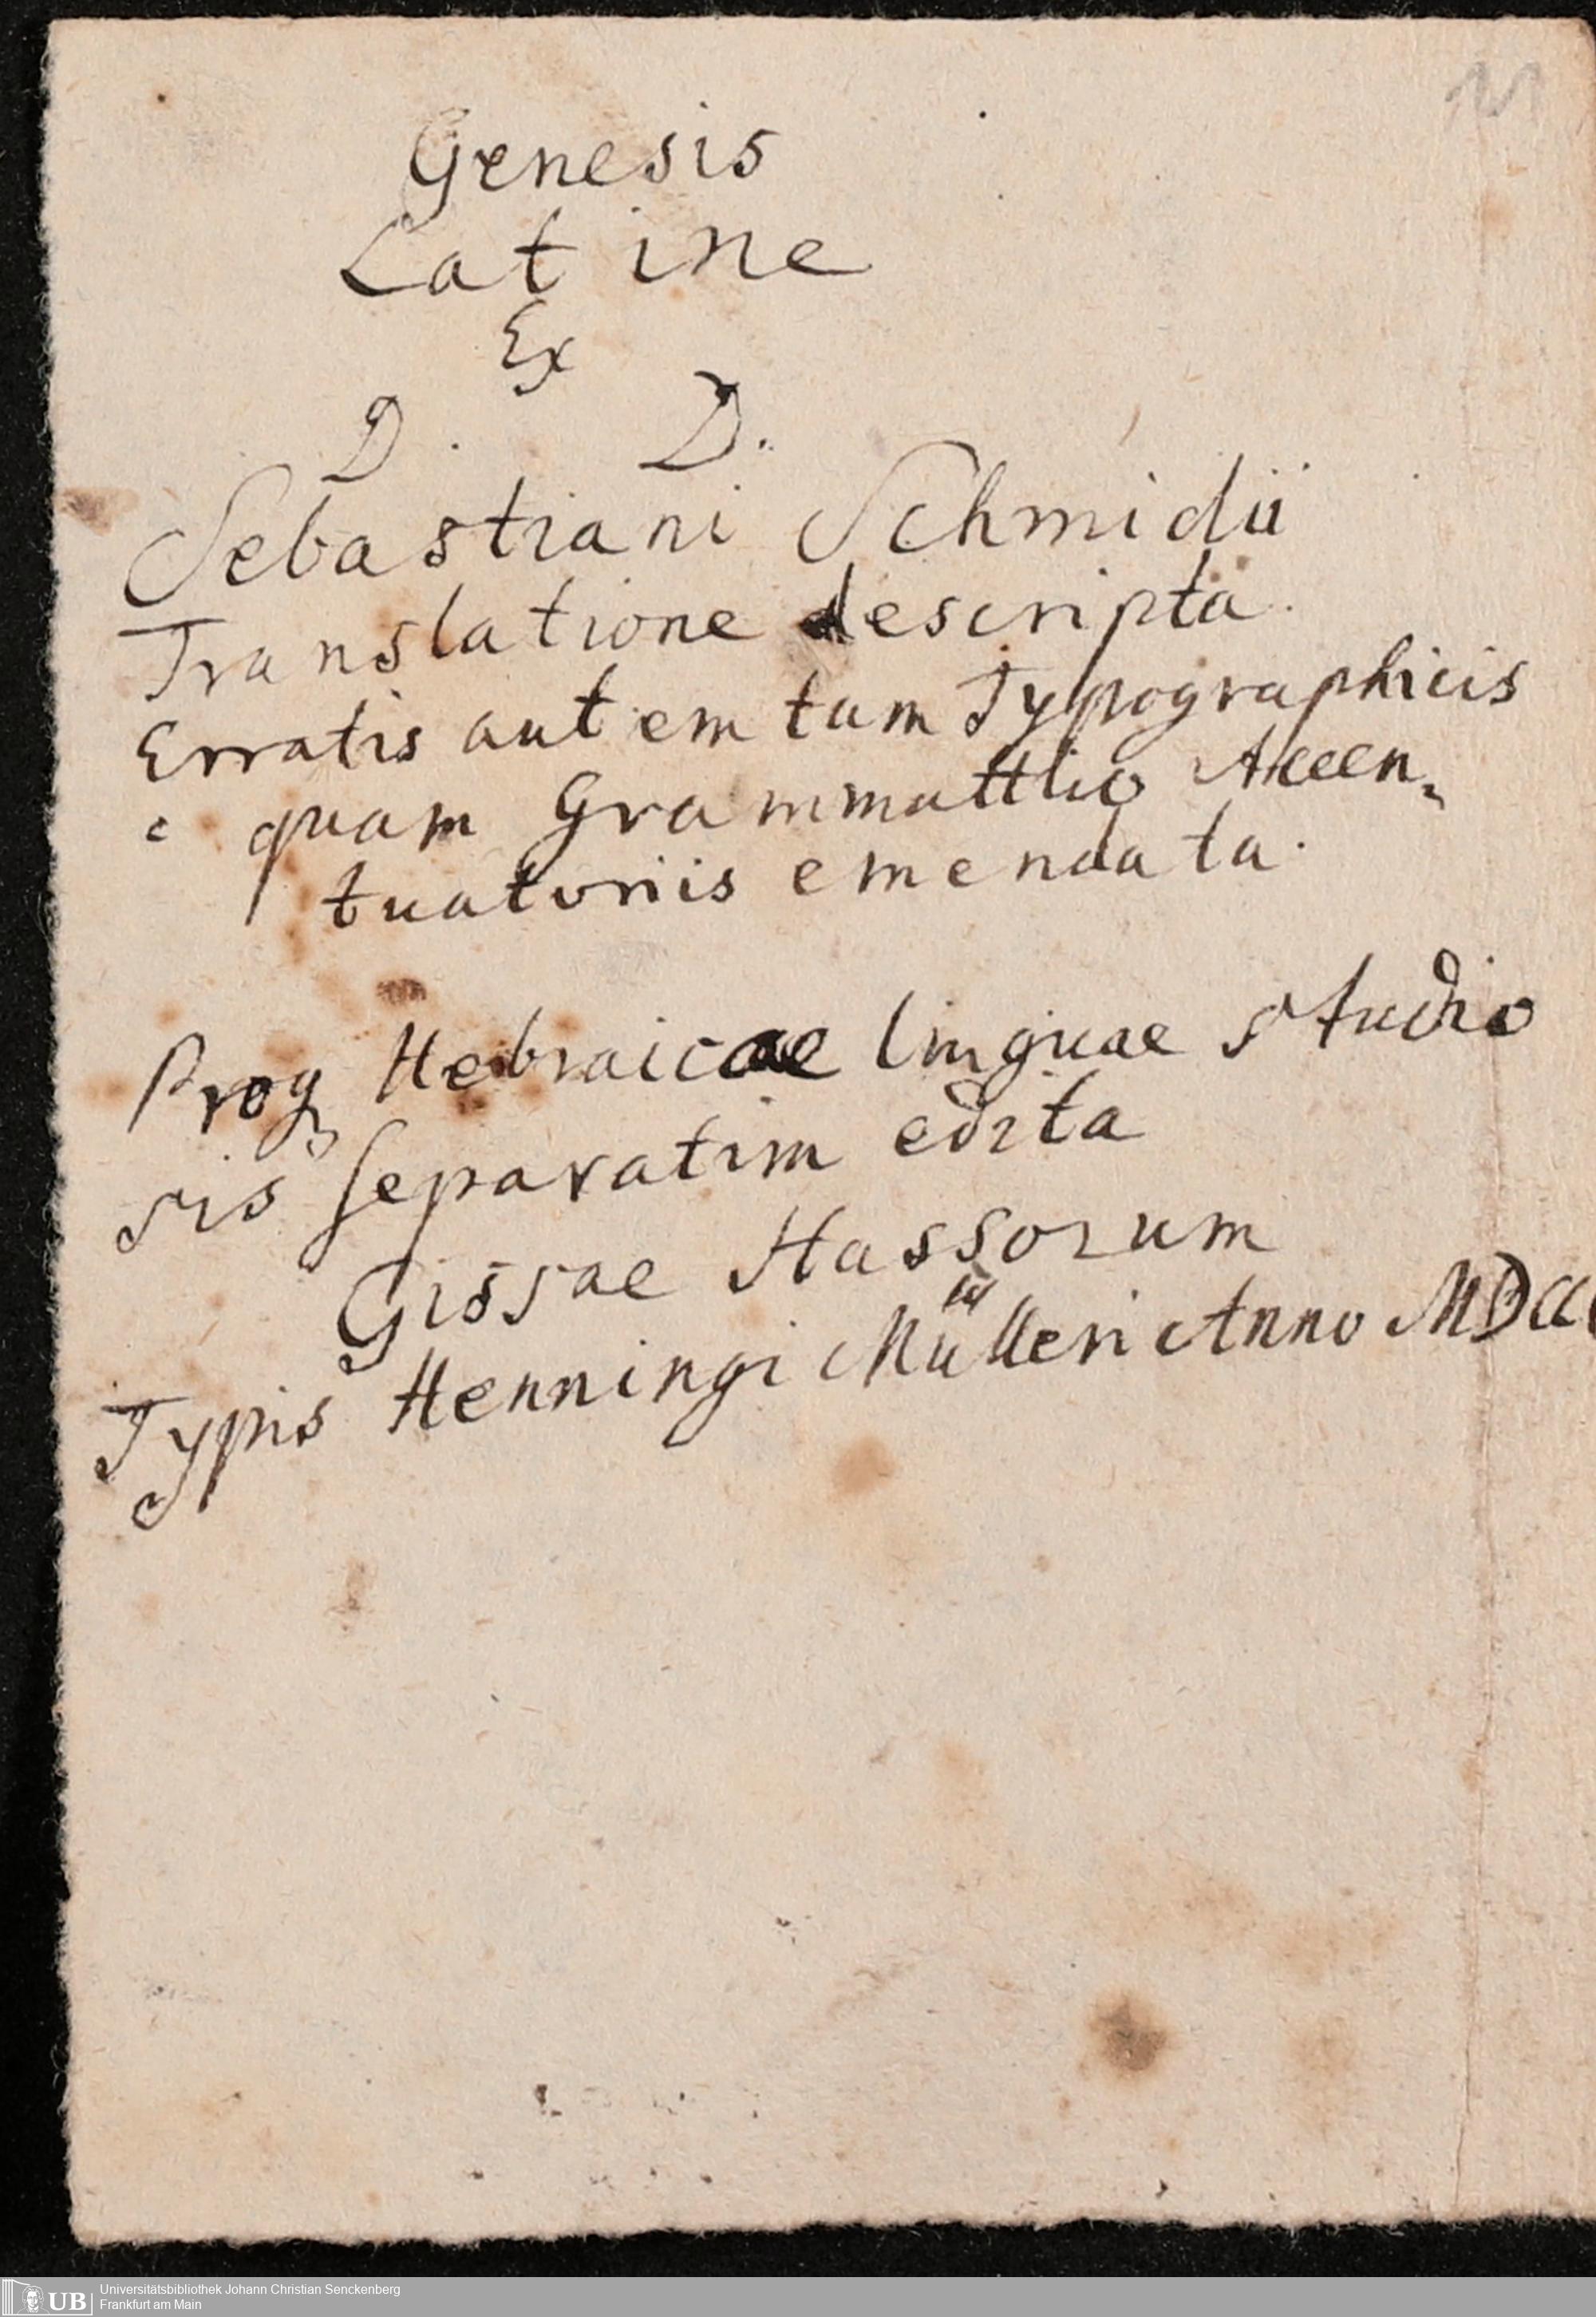 Genesis
Latine
Ex
D. D.
Sebastiani Schmidii
Translatione descripta.
Erratis autem tam Typographicis
quam Accen„
tuatoriis emendata.
Proq Hebraicae linguae studio
sis separatim edita
Gissae Hassorum
Typis Henningi Mülleri Anno MDCC
Universitätsbibliothek Johann Christian Senckenberg
UB Frankfurt am Main